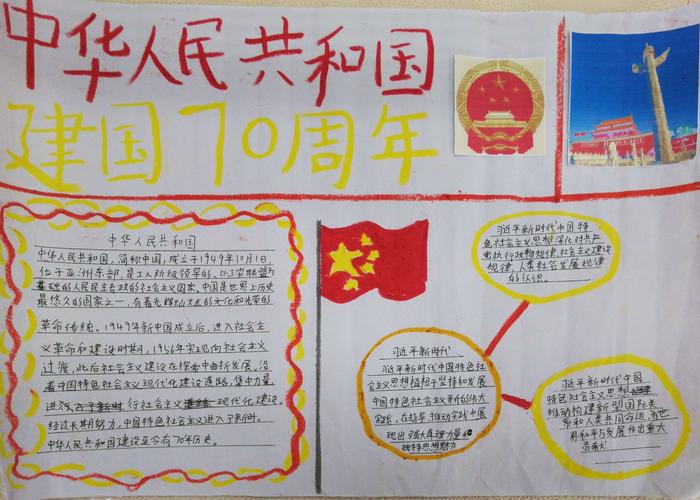 中华人民共和国
建国70周年
中华人民共和国
中华人民共和国，简称中国，成立于1949年10月1日，
位于亚洲东部，是工人阶级领导的，以工农联盟为
基础的人民民主专政的社会主义国家，中国是世界上历史
最悠久的国家之一，有着光辉灿烂的文化和光荣的
革命传统。1949年新中国成立后，进入社会主
义革命和建设时期，1956年实现向社会主义
过渡，此后社会主义建设在探索中曲折发展。沿
着中国特色社会主义现代化建设道路，集中力量
进行社会主义现代化建设。
经过长期努力，中国特色社会主义进入了新时。
中华人民共和国建设至今有70年历史。
习近平新时代中国特
色社会主义思想深化对共产
党执行政物规律，社会主义建设
规律，人类社会发展规律
的认识。
习近平新时代
习近平新时代中国特色社
会主义思想植根于坚持和发展
中国特色社会主义新的伟大
实践，在指导、推动实践中展
现出强大真理力量和
独特思想魅力
习近平新时代中国
特色社会主义思想
推动构建新型国际关
系和人类共同命运，为世
界和平与发展作出重大
贡献